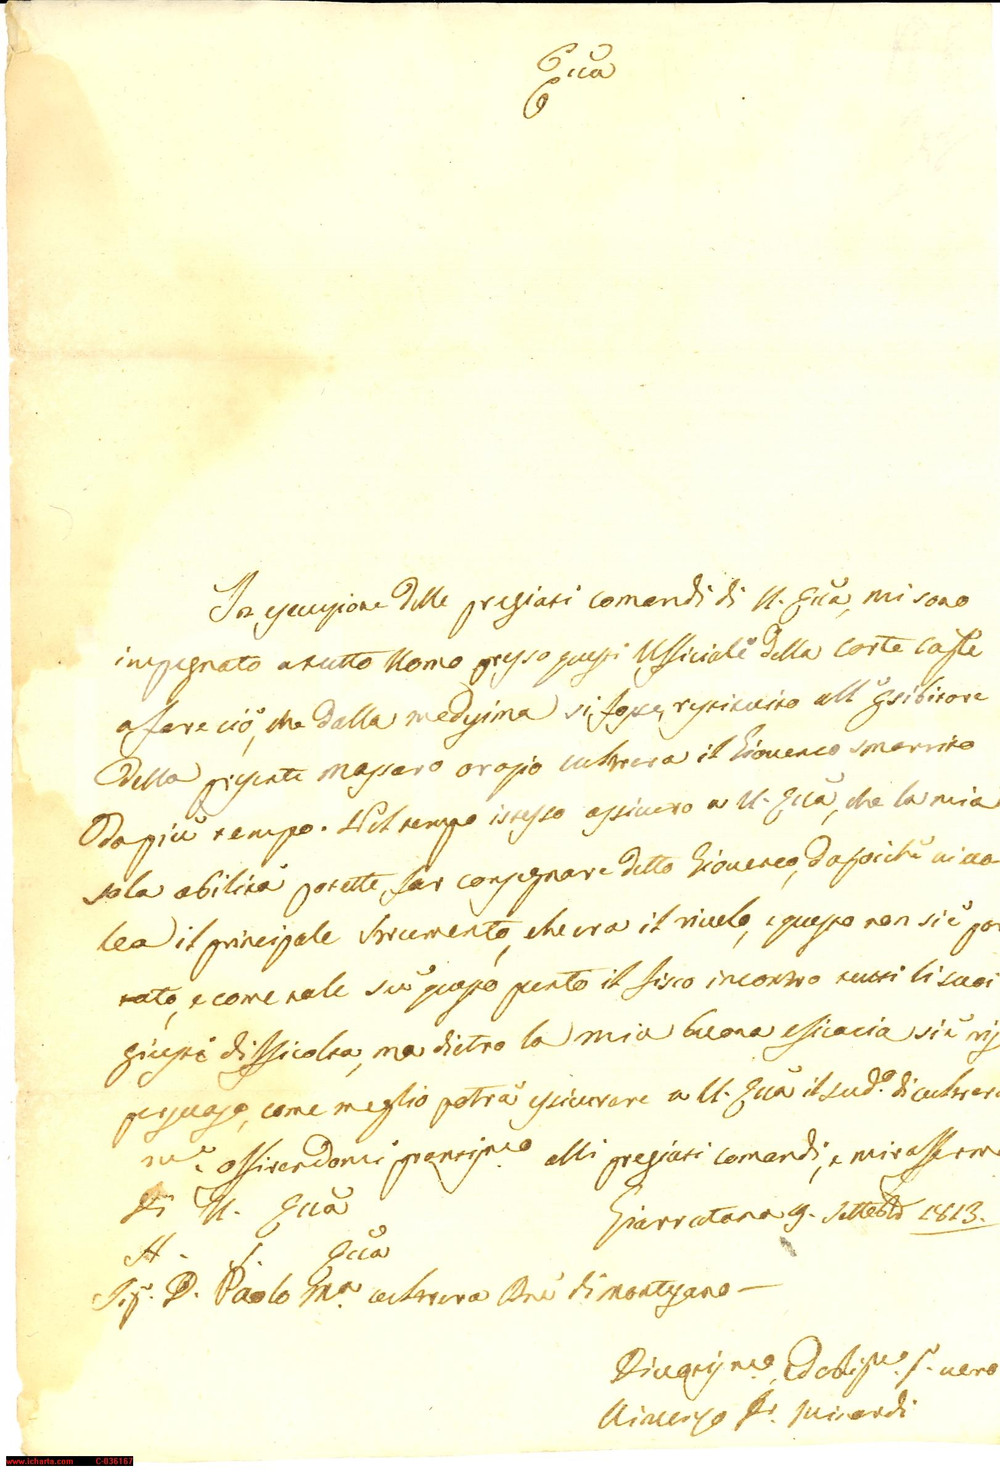 Ecc.a
In esecuzione delle pregiati comandi di V. Ecc.a, mi sono
impegnato a tutto Uomo presso questi Ufficiale della Corte
a fare ciò, che dalla medesima si fosse restituito all' Esibitore
Della presente Massaro Orazio Cutrera il Giovenco smarrito
Da più tempo. Nel tempo istesso assicuro a V. Ecc.a, che la mia
sola abilità potette far consegnare detto Giovenco, dapoiché
il principale Strumento, che era il rivelo, e questo non si è por
tato, e come tale su questo punto il Fisco incontro tutti li suoi
giusti difficoltà, ma dietro la mia buona efficacia si è
persuaso, come meglio potrà assicurare a V. Ecc.a il sud.o di Cutrera
offrendomi prontis.mo alli pregiati comandi, e mi raffermo
Di V. Ecc.a
Giarratana 9. Settebre 1813.
A S. Ecc.a
Sig. D. Paolo Cutrera Bne di Montesano —
Divotis.mo, ed oblis.mo S. vero
Vincenzo